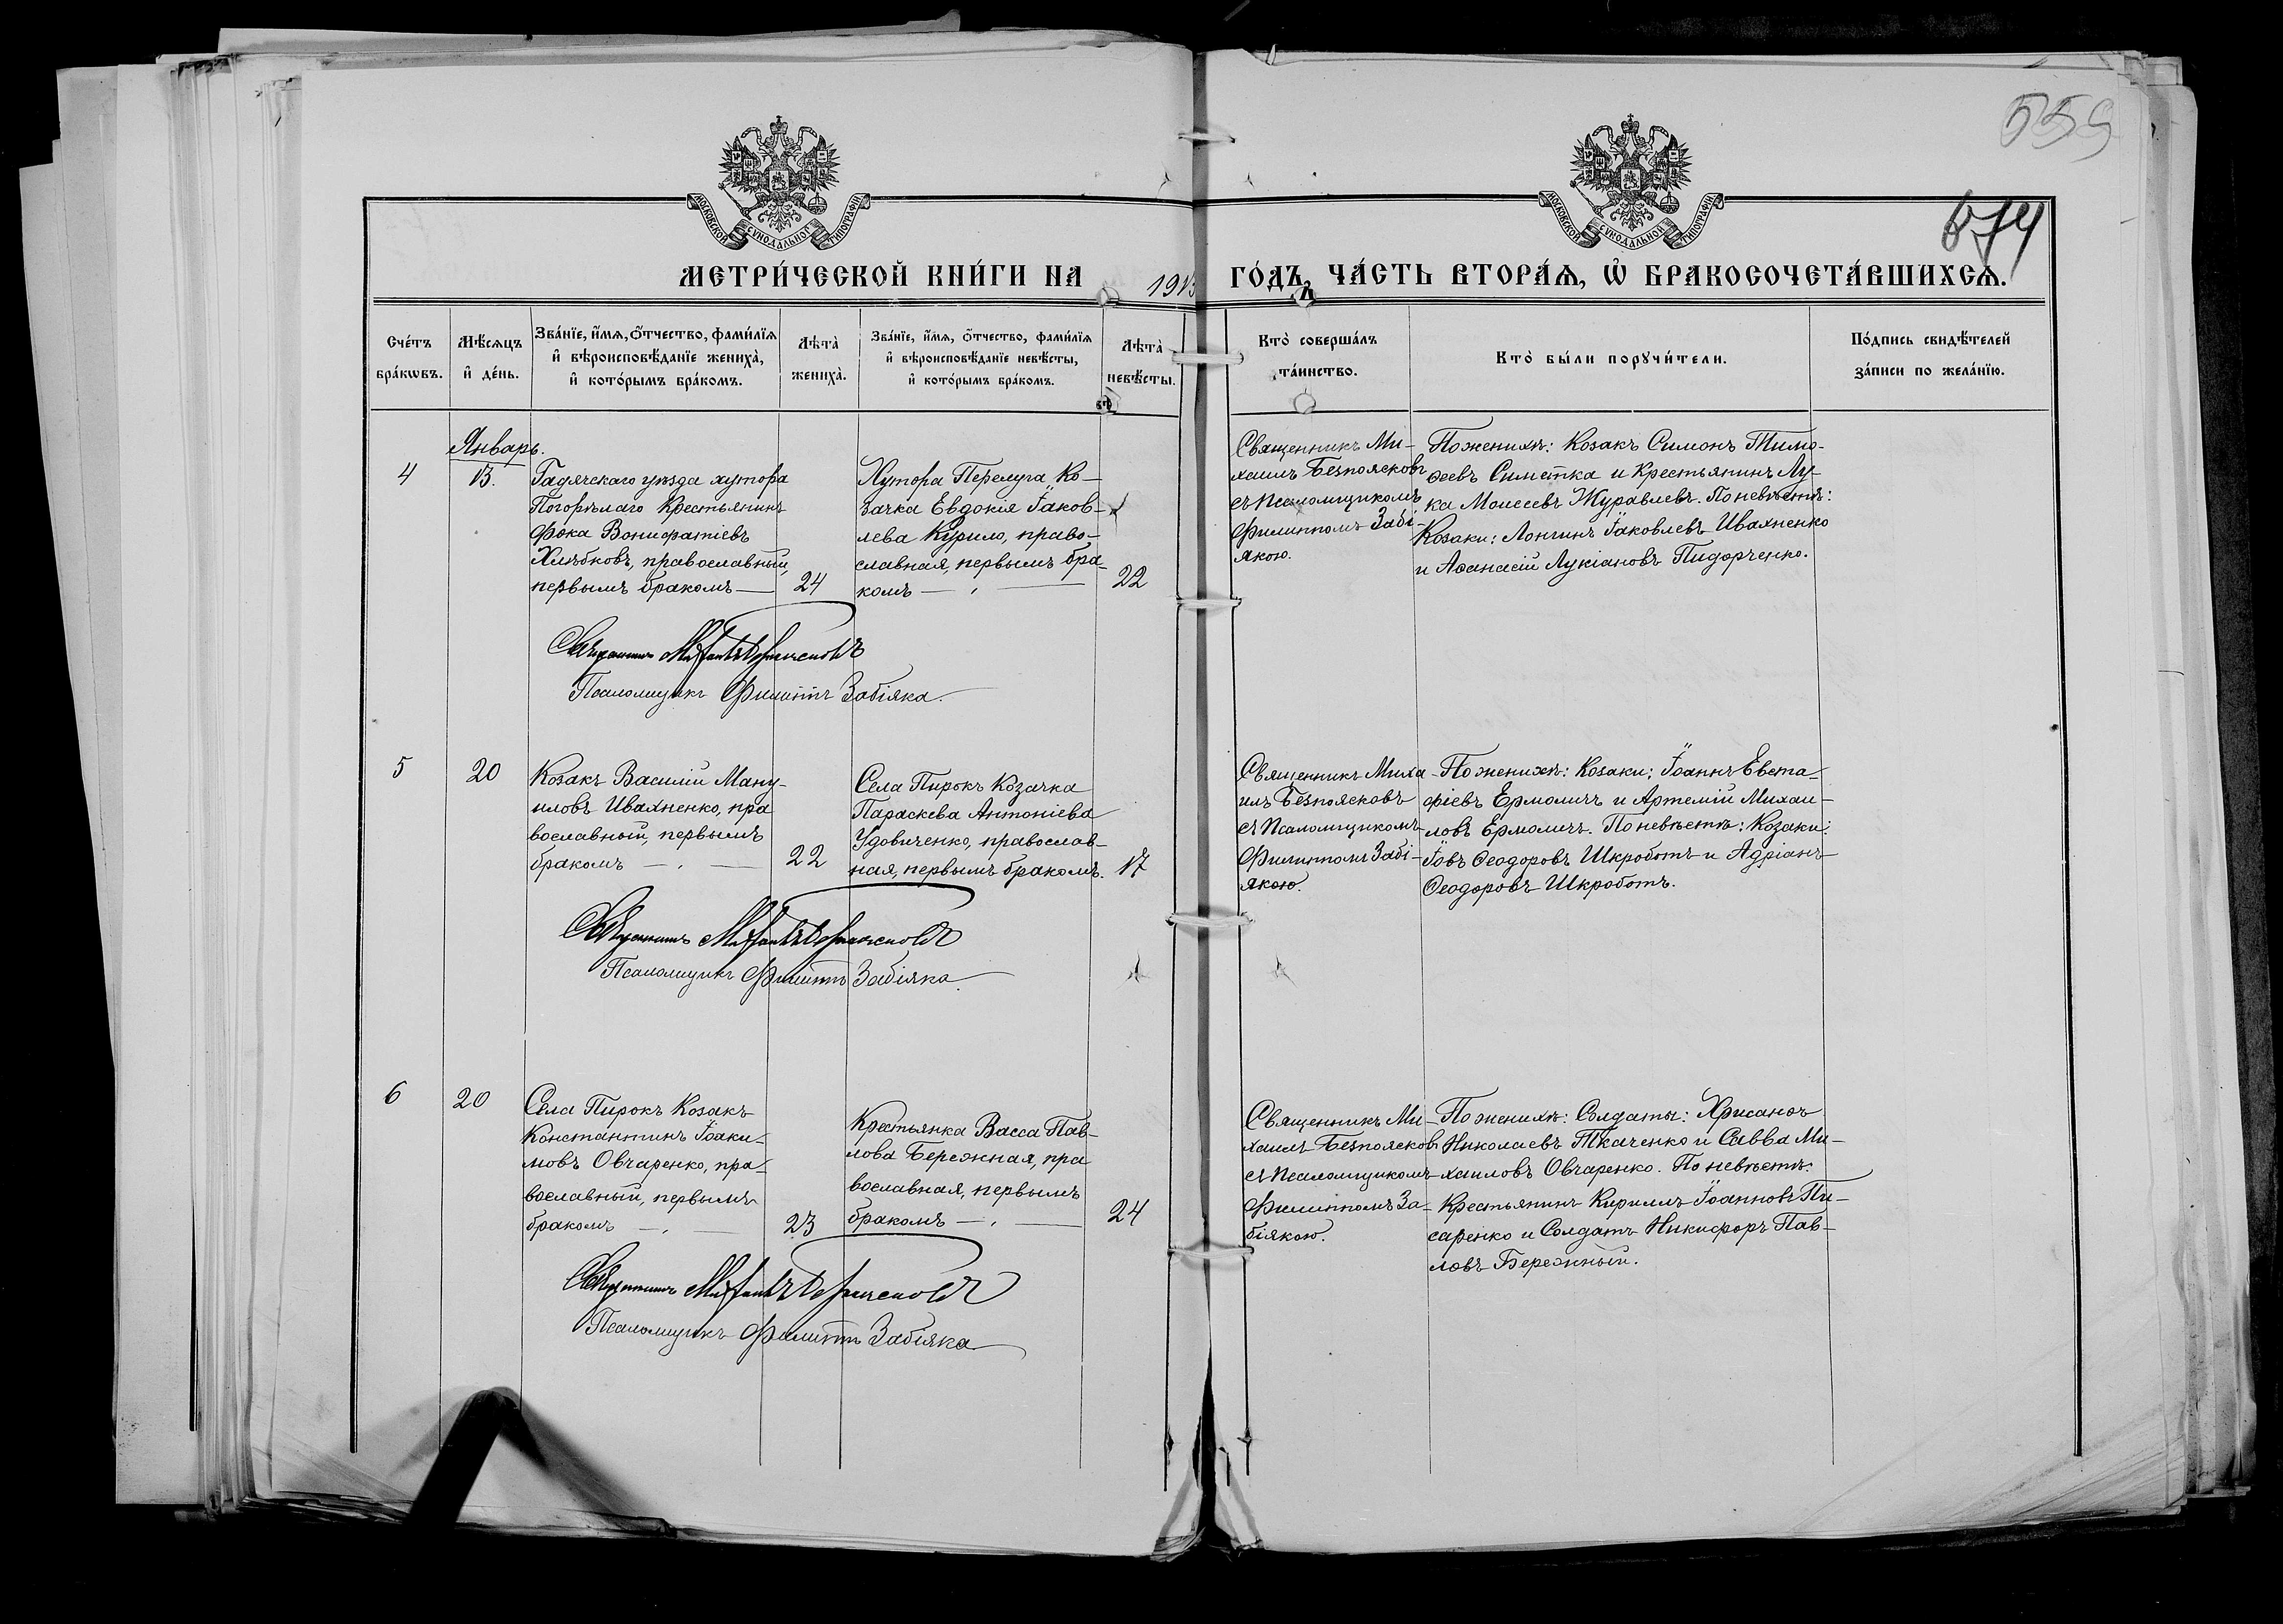 559
674
МОСКОВСКОЙ СѴНОДАЛЬНОЙ ТИПОГРАФІИ
МОСКОВСКОЙ СѴНОДАЛЬНОЙ ТИПОГРАФІИ
МЕТРИ́ЧЕСКОЙ КНИ́ГИ НА 1913 ГО́ДЪ, ЧА́СТЬ ВТОРА́Я, Ѡ҆ БРАКОСОЧЕТА́ВШИХСЯ.
Сче́тъ бра́кѡвъ.
Мѣ́сяцъ и҆ де́нь.
Зва́нїе, и҆́мя, ѻ҆́тчество, фами́лїя
и҆ вѣроисповѣ́данїе жениха̀,
и҆ кото́рымъ бра́комъ.
Лѣта̀ жениха̀.
Зва́нїе, и҆́мя, ѻ҆́тчество, фами́лїя
и҆ вѣроисповѣ́данїе невѣ́сты,
и҆ кото́рымъ бра́комъ.
Лѣта̀ невѣ́сты.
Кто̀ соверша́лъ та́инство.
Кто̀ бы́ли порꙋчи́тели.
По́дпись свидѣ́телей за́писи по жела́нїю.
Январь.
4
13.
Гадячскаго уѣзда хутора
Погорѣлаго Крестьянинъ
Фока Вонифатіевъ
Хлѣбковъ, православный,
первымъ бракомъ —
24
Хутора Перелуга Ко-
зачка Евдокія Іаков-
лева Курило, право-
славная, первымъ бра-
комъ —
22
Священникъ Ми-
хаилъ Безпоясковъ
съ Псаломщикомъ
Филиппомъ Забі-
якою.
По женихѣ: Козакъ Симонъ Тимо-
ѳеевъ Симотка и Крестьянинъ Лу-
ка Моисеевъ Журавлевъ. По невѣстѣ:
Козаки: Лонгинъ Іаковлевъ Ивахненко
и Аѳанасій Лукіановъ Пидорченко.
Священникъ Михаилъ Безпоясковъ
Псаломщикъ Филиппъ Забіяка.
5
20
Козакъ Василій Ману-
иловъ Ивахненко, пра
вославный, первымъ
бракомъ —
22
Села Пирокъ Козачка
Параскева Антоніева
Удовиченко, православ-
ная, первымъ бракомъ.
17
Священникъ Миха-
илъ Безпоясковъ
съ Псаломщикомъ
Филиппомъ Забі-
якою.
По женихѣ: Козаки: Іоаннъ Евста-
фіевъ Ермоличъ и Артемій Михаи-
ловъ Ермоличъ. По невѣстѣ: Козаки:
Іовъ Ѳеодоровъ Шкроботъ и Адріанъ
Ѳеодоровъ Шкроботъ.
Священникъ Михаилъ Безпоясковъ
Псаломщикъ Филиппъ Забіяка.
6
20
Села Пирокъ Козакъ
Константинъ Іоаки-
мовъ Овчаренко, пра-
вославный, первымъ
бракомъ —
23
Крестьянка Васса Пав-
лова Бережная, пра
вославная, первымъ
бракомъ —
24
Священникъ Ми-
хаилъ Безпоясковъ
съ Псаломщикомъ
Филиппомъ За-
біякою.
По женихѣ: Солдаты: Хрисанѳъ
Николаевъ Ткаченко и Савва Ми-
хаиловъ Овчаренко. По невѣстѣ:
Крестьянинъ Кириллъ Іоанновъ Пи-
саренко и Солдатъ Никифоръ Пав-
ловъ Бережный.
Священникъ Михаилъ Безпоясковъ
Псаломщикъ Филиппъ Забіяка